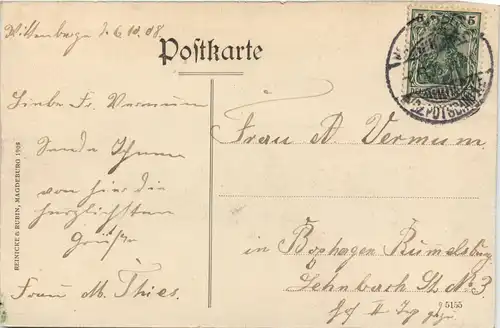 Wittenberge d. 6.10.08.
Postkarte
5 5
Liebe Fr. Vermum
Sende Ihnen
von hier die
herzlichsten
Grüße
Frau M. Thies.
REINICKE & RUBIN, MAGDEBURG 1908
Frau A Vermum.
in Boxhagen Rummelsburg
Lehnbach St. No. 3
Hof II
5155